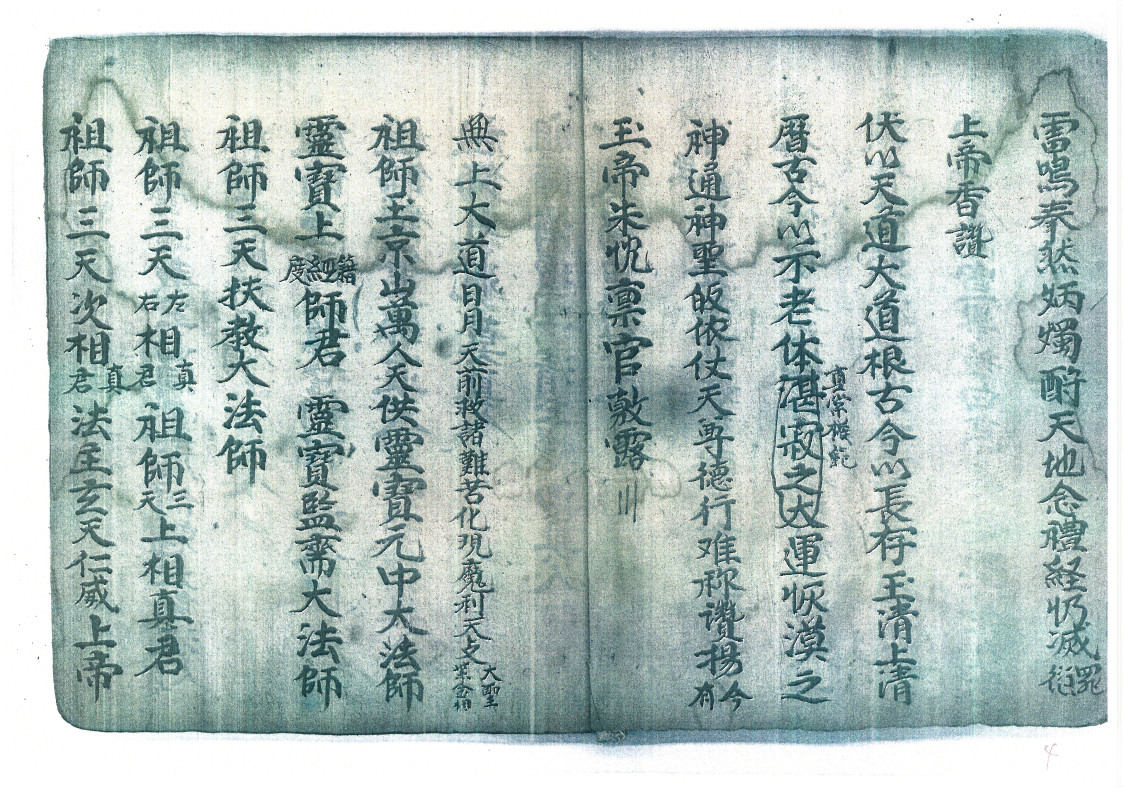 雷鳴奉然炳燭酧天地念禮経仍滅罪
上帝香讚
伏以天道大道根古今以長存玉清上清
曆古今以示老体湛寂之大運恢漠之
真常機
神通神聖皈依仗天尊德行难称讚揚今有
玉帝朱忱稟官敷露
無上大道日月天前救諸難苦化現魔利天支大聖紫金相
祖師玉京山萬人天供靈寶元中大法師
靈寶上籍經度師君 靈寶監齋大法師
祖師三天扶教大法師
祖師三天左右相真君 祖師三天上相真君
祖師三天次相真君 法主玄天仁威上帝
4